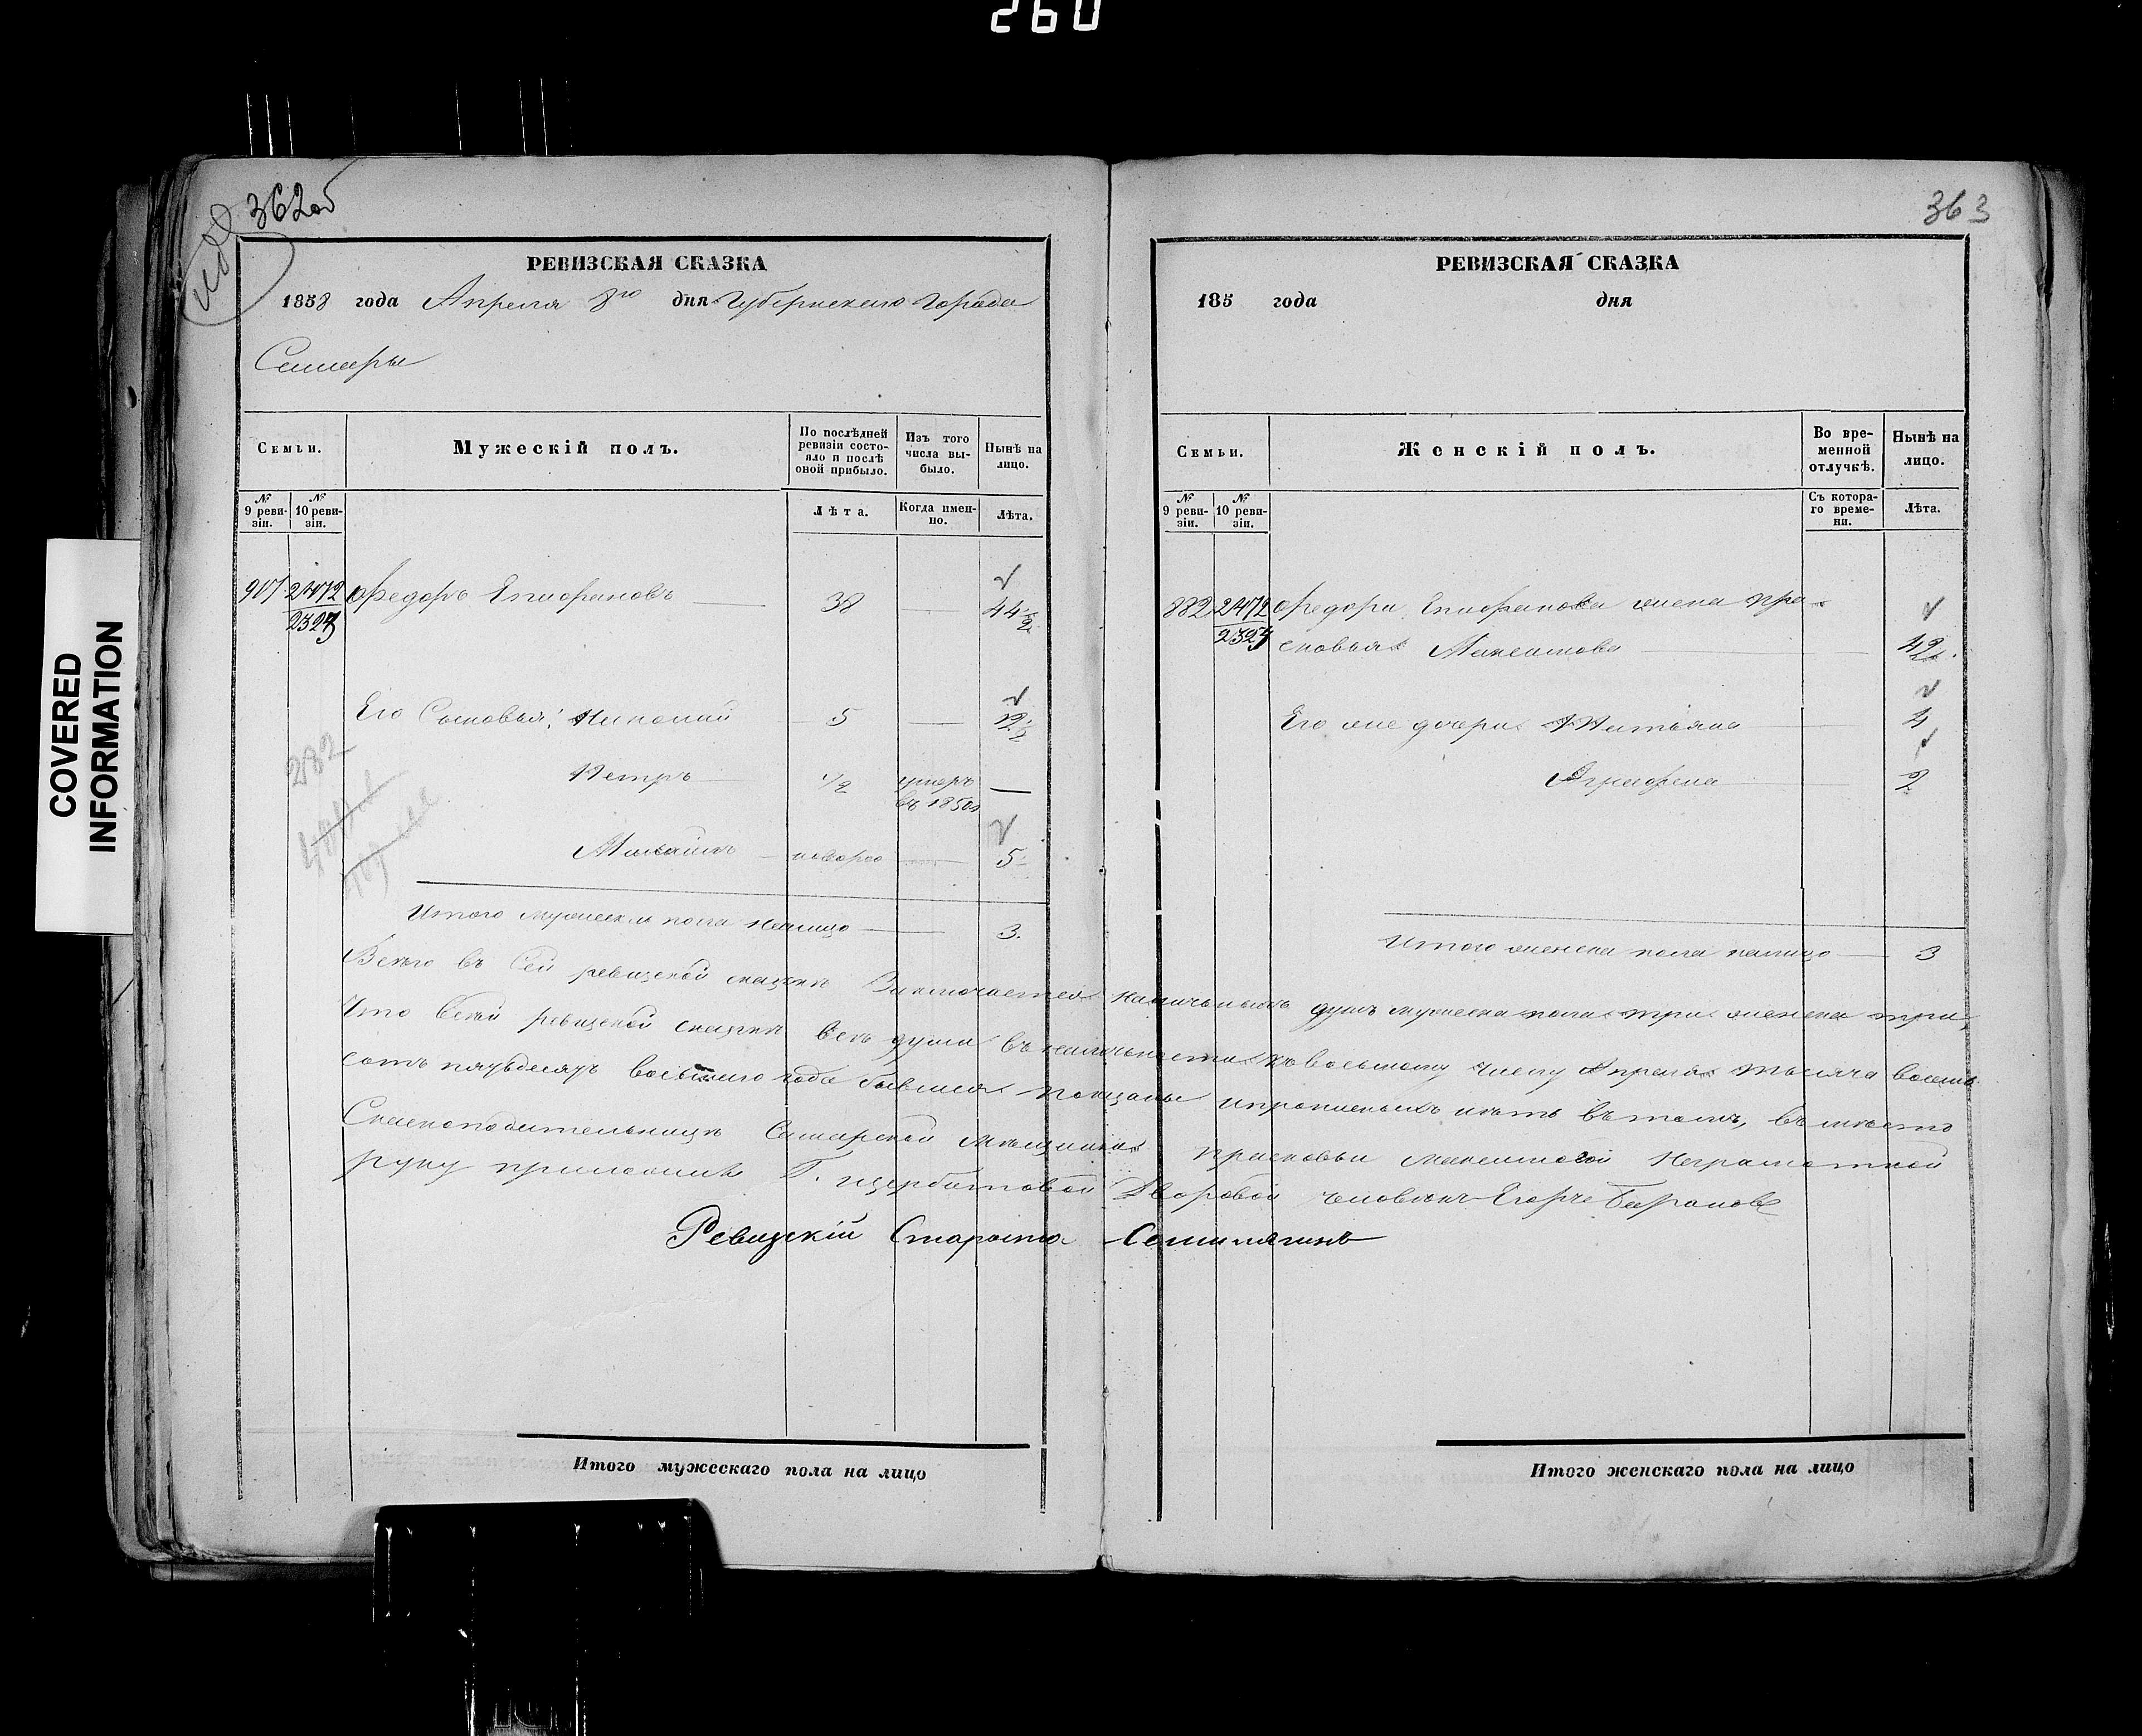 260
362об
363
COVERED
INFORMATION
РЕВИЗСКАЯ СКАЗКА
1858 года Апреля 8го дня Губернскаго Города
Самары
Семьи.
Мужескій полъ.
По послѣдней ревизіи состояло и послѣ оной прибыло.
Изъ того числа выбыло.
Нынѣ на лицо.
№ 9 ревизіи.
№ 10 ревизіи.
Лѣта.
Когда именно.
Лѣта.
2472 Федоръ Епифановъ 38 44 1/2
2327
Его Сыновья: 5
282
Петръ 1/2 умеръ
въ 1850
Михаилъ новорож 5
Итого мужеска пола налицо 3.
РЕВИЗСКАЯ СКАЗКА
185 года дня
Семьи.
Женскій полъ.
Во временной отлучкѣ.
Нынѣ на лицо.
№ 9 ревизіи.
№ 10 ревизіи.
Съ котораго времени.
Лѣта.
882 2472 Федора Епифанова жена Пра-
2327 сковья Максимова 42
Его же дочери 4
2
Итого женска пола налицо 3
Всего въ Сей ревизской сказкѣ Заключается наличныхъ душъ мужеска пола три женска три,
Что ревизской сказкѣ всѣ души въ наличности къ восьмому числу Апреля тысяча восемь
сотъ пятьдесятъ восьмаго года бывшія показаны и прописныхъ нѣтъ въ томъ, вмѣсто
Сказкоподательницы Самарской Мѣщанки Прасковьи Максимовой Неграмотной
руку приложилъ Г. Щербатовой Дворовой человѣкъ Егоръ Барановъ
Ревизскій Староста
Итого мужескаго пола на лицо
Итого женскаго пола на лицо